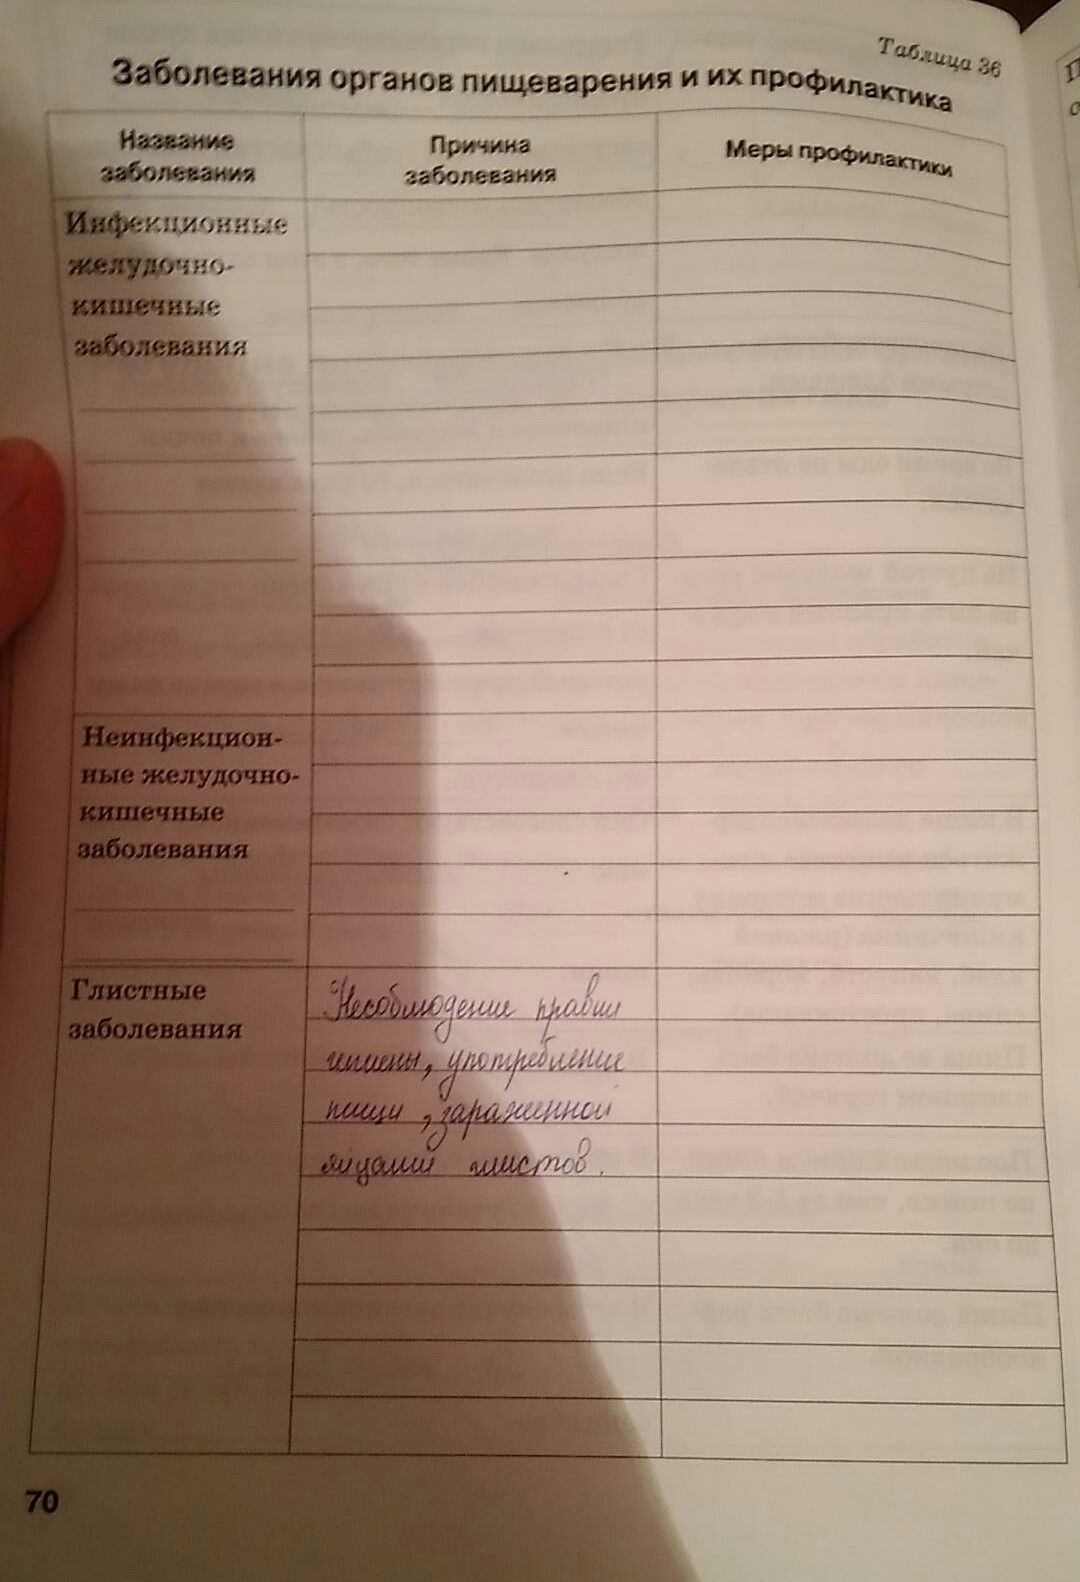 Таблица 36
Заболевания органов пищеварения и их профилактика
Название
заболевания
Причина
заболевания
Меры профилактики
Инфекционные
желудочно-
кишечные
заболевания
Неинфекцион-
ные желудочно-
кишечные
заболевания
Глистные
заболевания
Несоблюдение правил
гигиены, употребление
пищи, зараженной
яйцами глистов.
70